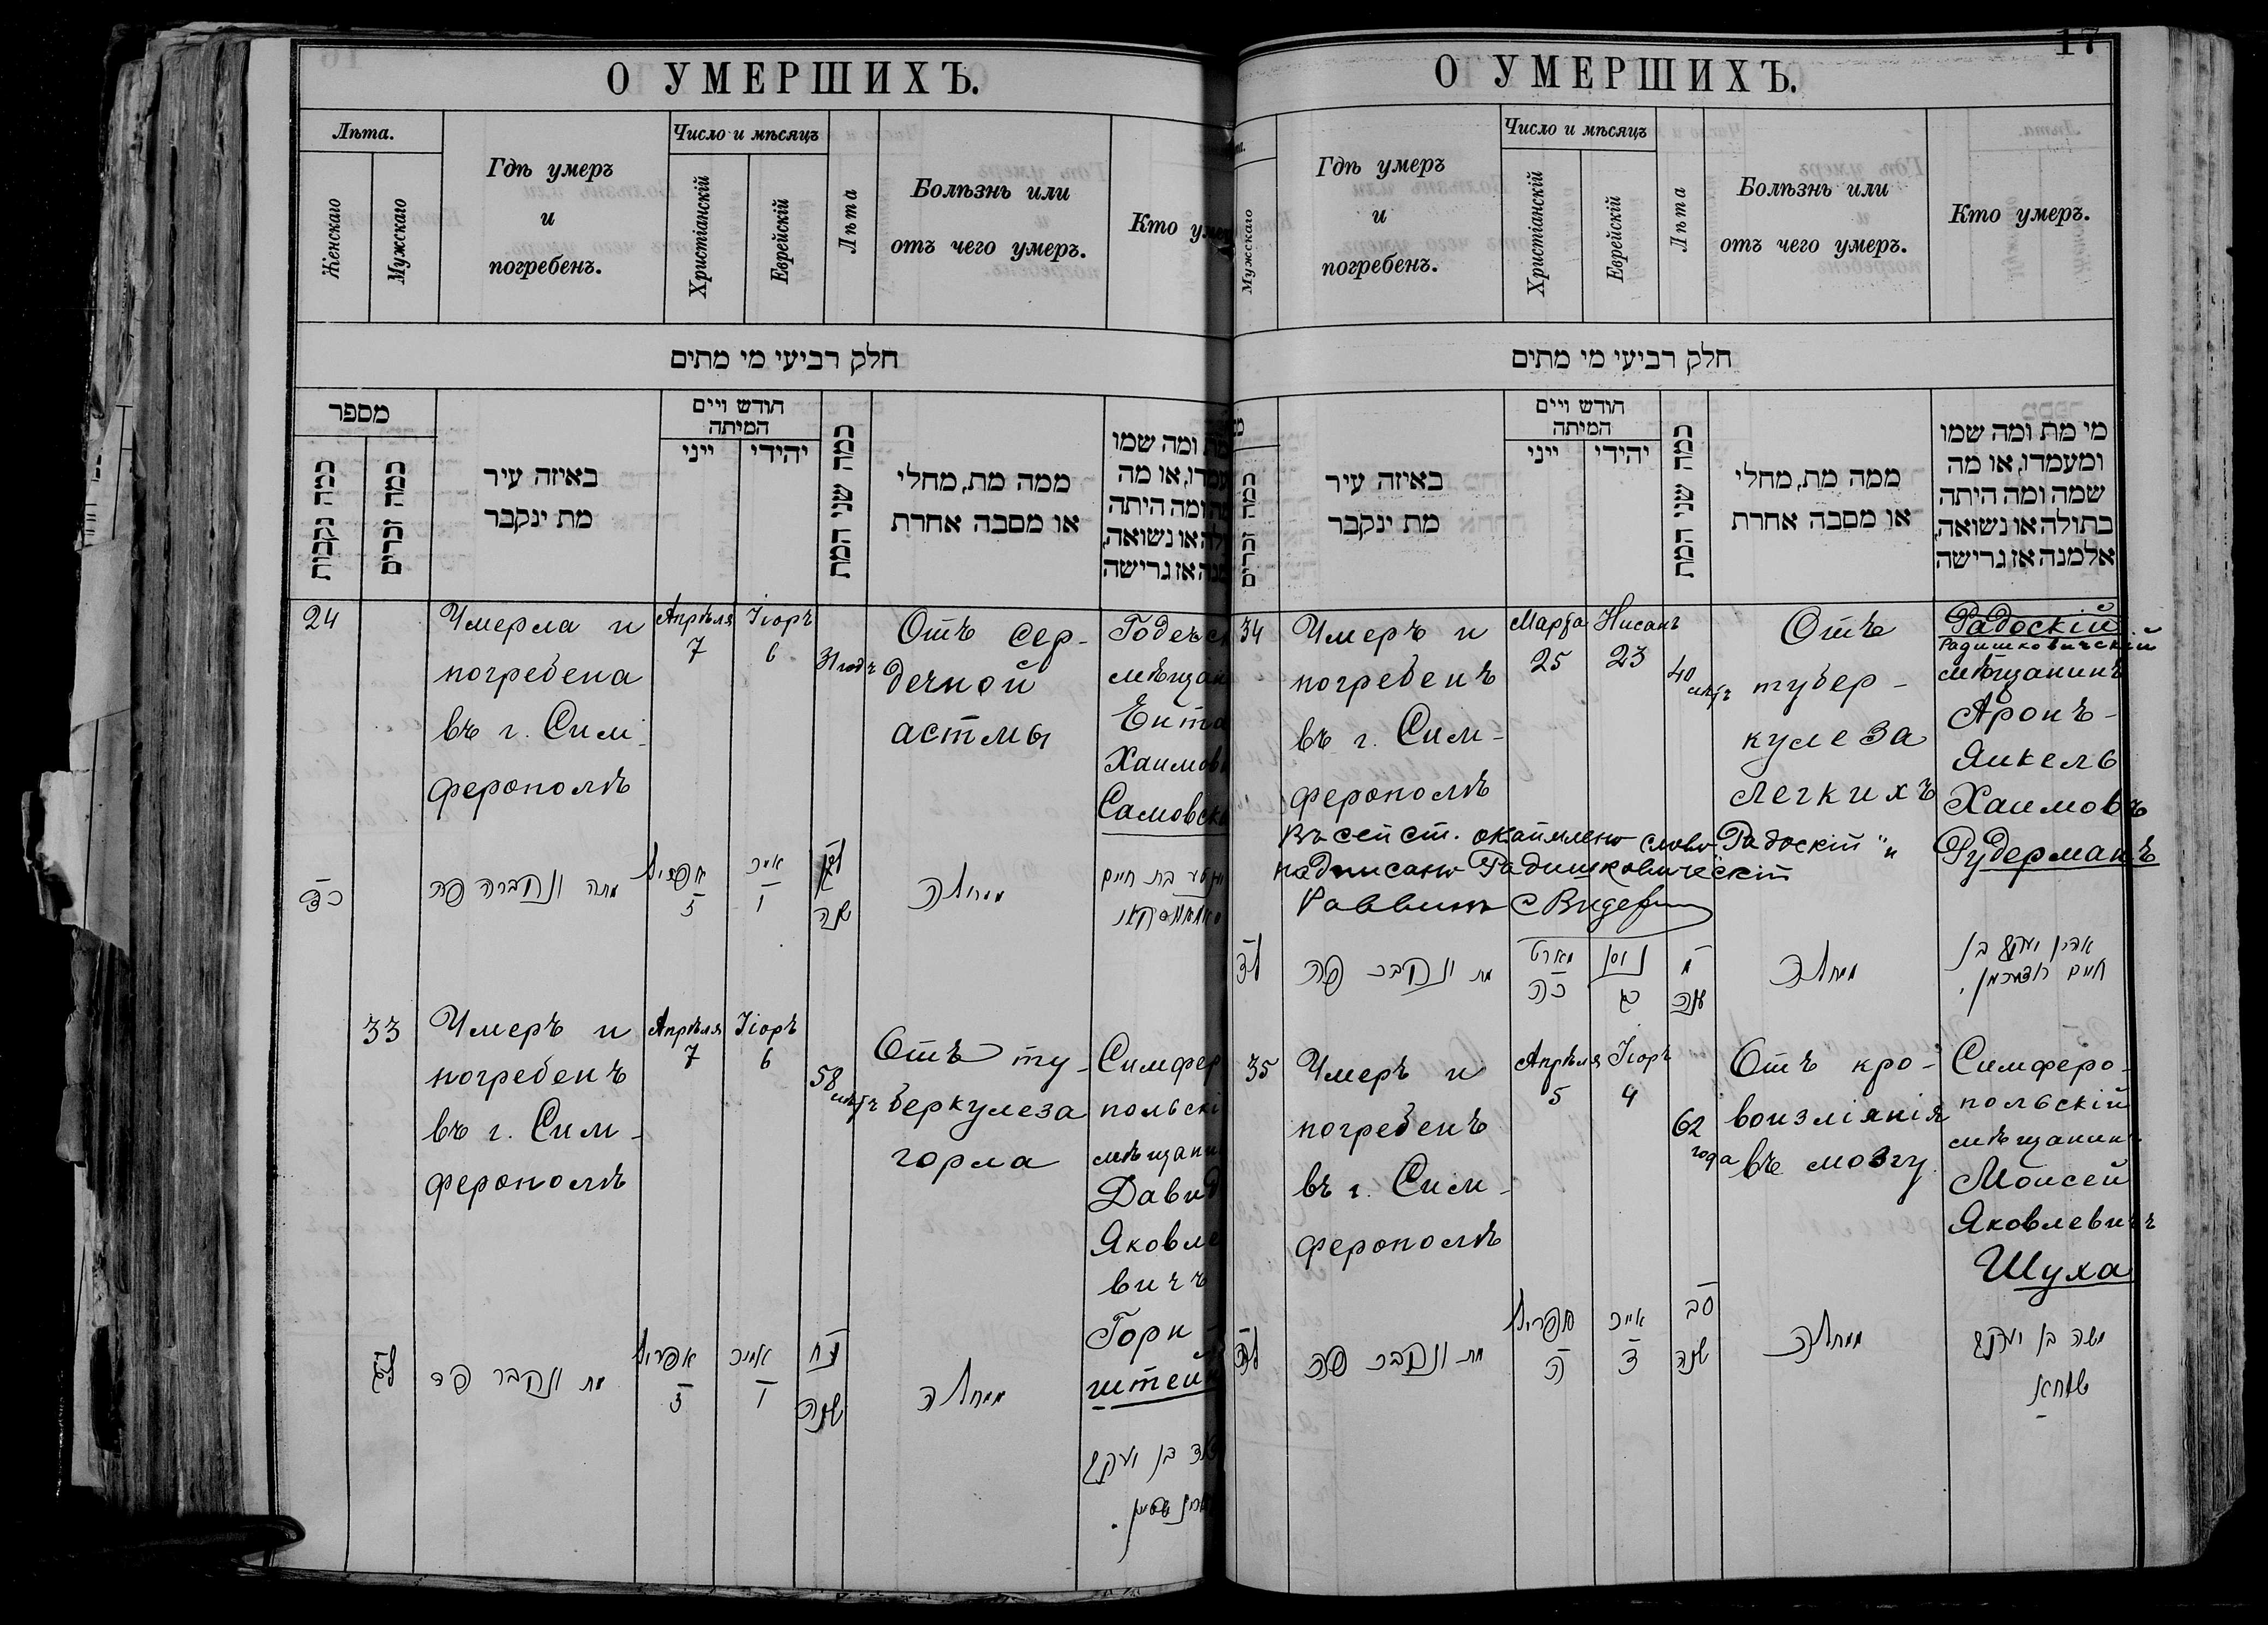 О УМЕРШИХЪ.
Лѣта.
Женскаго
Мужскаго
Гдѣ умеръ
и
погребенъ.
Число и мѣсяцъ
Христіанскій
Еврейскій
Лѣта
Болѣзнь или
отъ чего умеръ.
Кто умер
חלק רביעי מי מתים
מספר
כמה נקבות
כמה זכרים
באיזה עיר
מת ינקבר
חודש ויים
המיתה
ייני
יהידי
כמה שני המת
ממה מת, מחלי
או מסבה אחרת
מת ומה שמו
עמדו, או מה
ומה היתה
או נשואה,
אז גרישה
24
Умерла и
погребена
въ г. Сим-
ферополѣ
Апрѣля
7
Ііоръ
6
31 годъ
Отъ сер-
дечной
астмы
мѣщан
Хаимов
Самовск
כד
מתה ונקברה פה
אפריל
ז
אייר
ו
לא
שנה
ממחלה
בת חיים
33
Умеръ и
погребенъ
въ г. Сим-
ферополѣ
Апрѣля
7
Ііоръ
6
58
лѣтъ
Отъ ту-
беркулеза
горла
Симфер
польскі
мѣщани
Давид
Яковле
вичъ
Горн-
штейн
לג
מת ונקבר פה
אפריל
ז
אייר
ו
נח
שנה
ממחלה
בן יעקב
17
О УМЕРШИХЪ.
Мужскаго
Гдѣ умеръ
и
погребенъ.
Число и мѣсяцъ
Христіанскій
Еврейскій
Лѣта
Болѣзнь или
отъ чего умеръ.
Кто умеръ.
חלק רביעי מי מתים
כמה זכרים
באיזה עיר
מת ינקבר
חודש ויים
המיתה
ייני
יהידי
כמה שני המת
ממה מת, מחלי
או מסבה אחרת
מי מת ומה שמו
ומעמדו, או מה
שמה ומה היתה
בתולה או נשואה,
אלמנה אז גרישה
34
Умеръ и
погребенъ
въ г. Сим-
ферополѣ
Марта
25
Нисанъ
23
40
лѣтъ
Отъ
тубер-
кулеза
легкихъ
Радоскій
Радишковичскій
мѣщанинъ
Аронъ-
Янкель
Хаимовъ
Рудерманъ
Въ сей ст. окаймлено слово "Радоскій" и
надписано "Радишковическій"
Раввинъ
לד
מת ונקבר פה
מארט
כה
ניסן
כג
מ
שנה
ממחלה
אהרן יעקב בן
חיים רודערמן.
35
Умеръ и
погребенъ
въ г. Сим-
ферополѣ
Апрѣля
5
Ііоръ
4
62
года
Отъ кро-
воизліянія
въ мозгу
Симферо-
польскій
мѣщанинъ
Моисей
Яковлевичъ
Шуха
לה
מת ונקבר פה
אפריל
ה
אייר
ד
סב
שנה
ממחלה
משה בן יעקב
שוחא